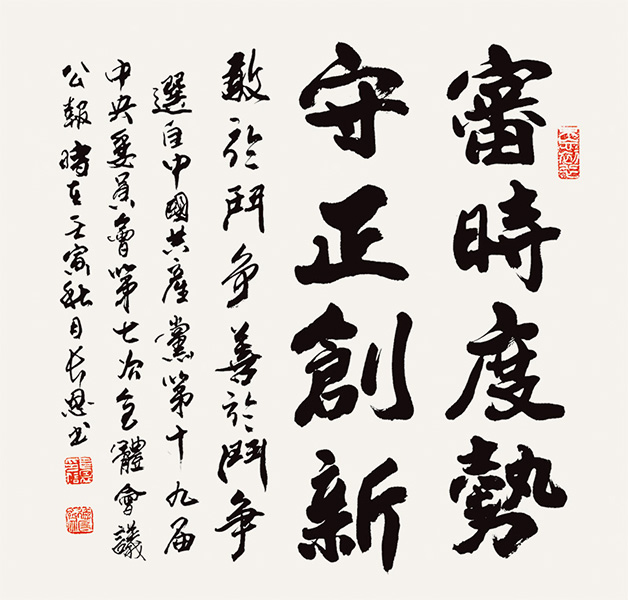 審時度勢
守正創新
敢於鬥爭善於鬥爭
選自中國共產黨第十九届
中央委員會第七次全體會議
公報時在壬寅秋月長恩書